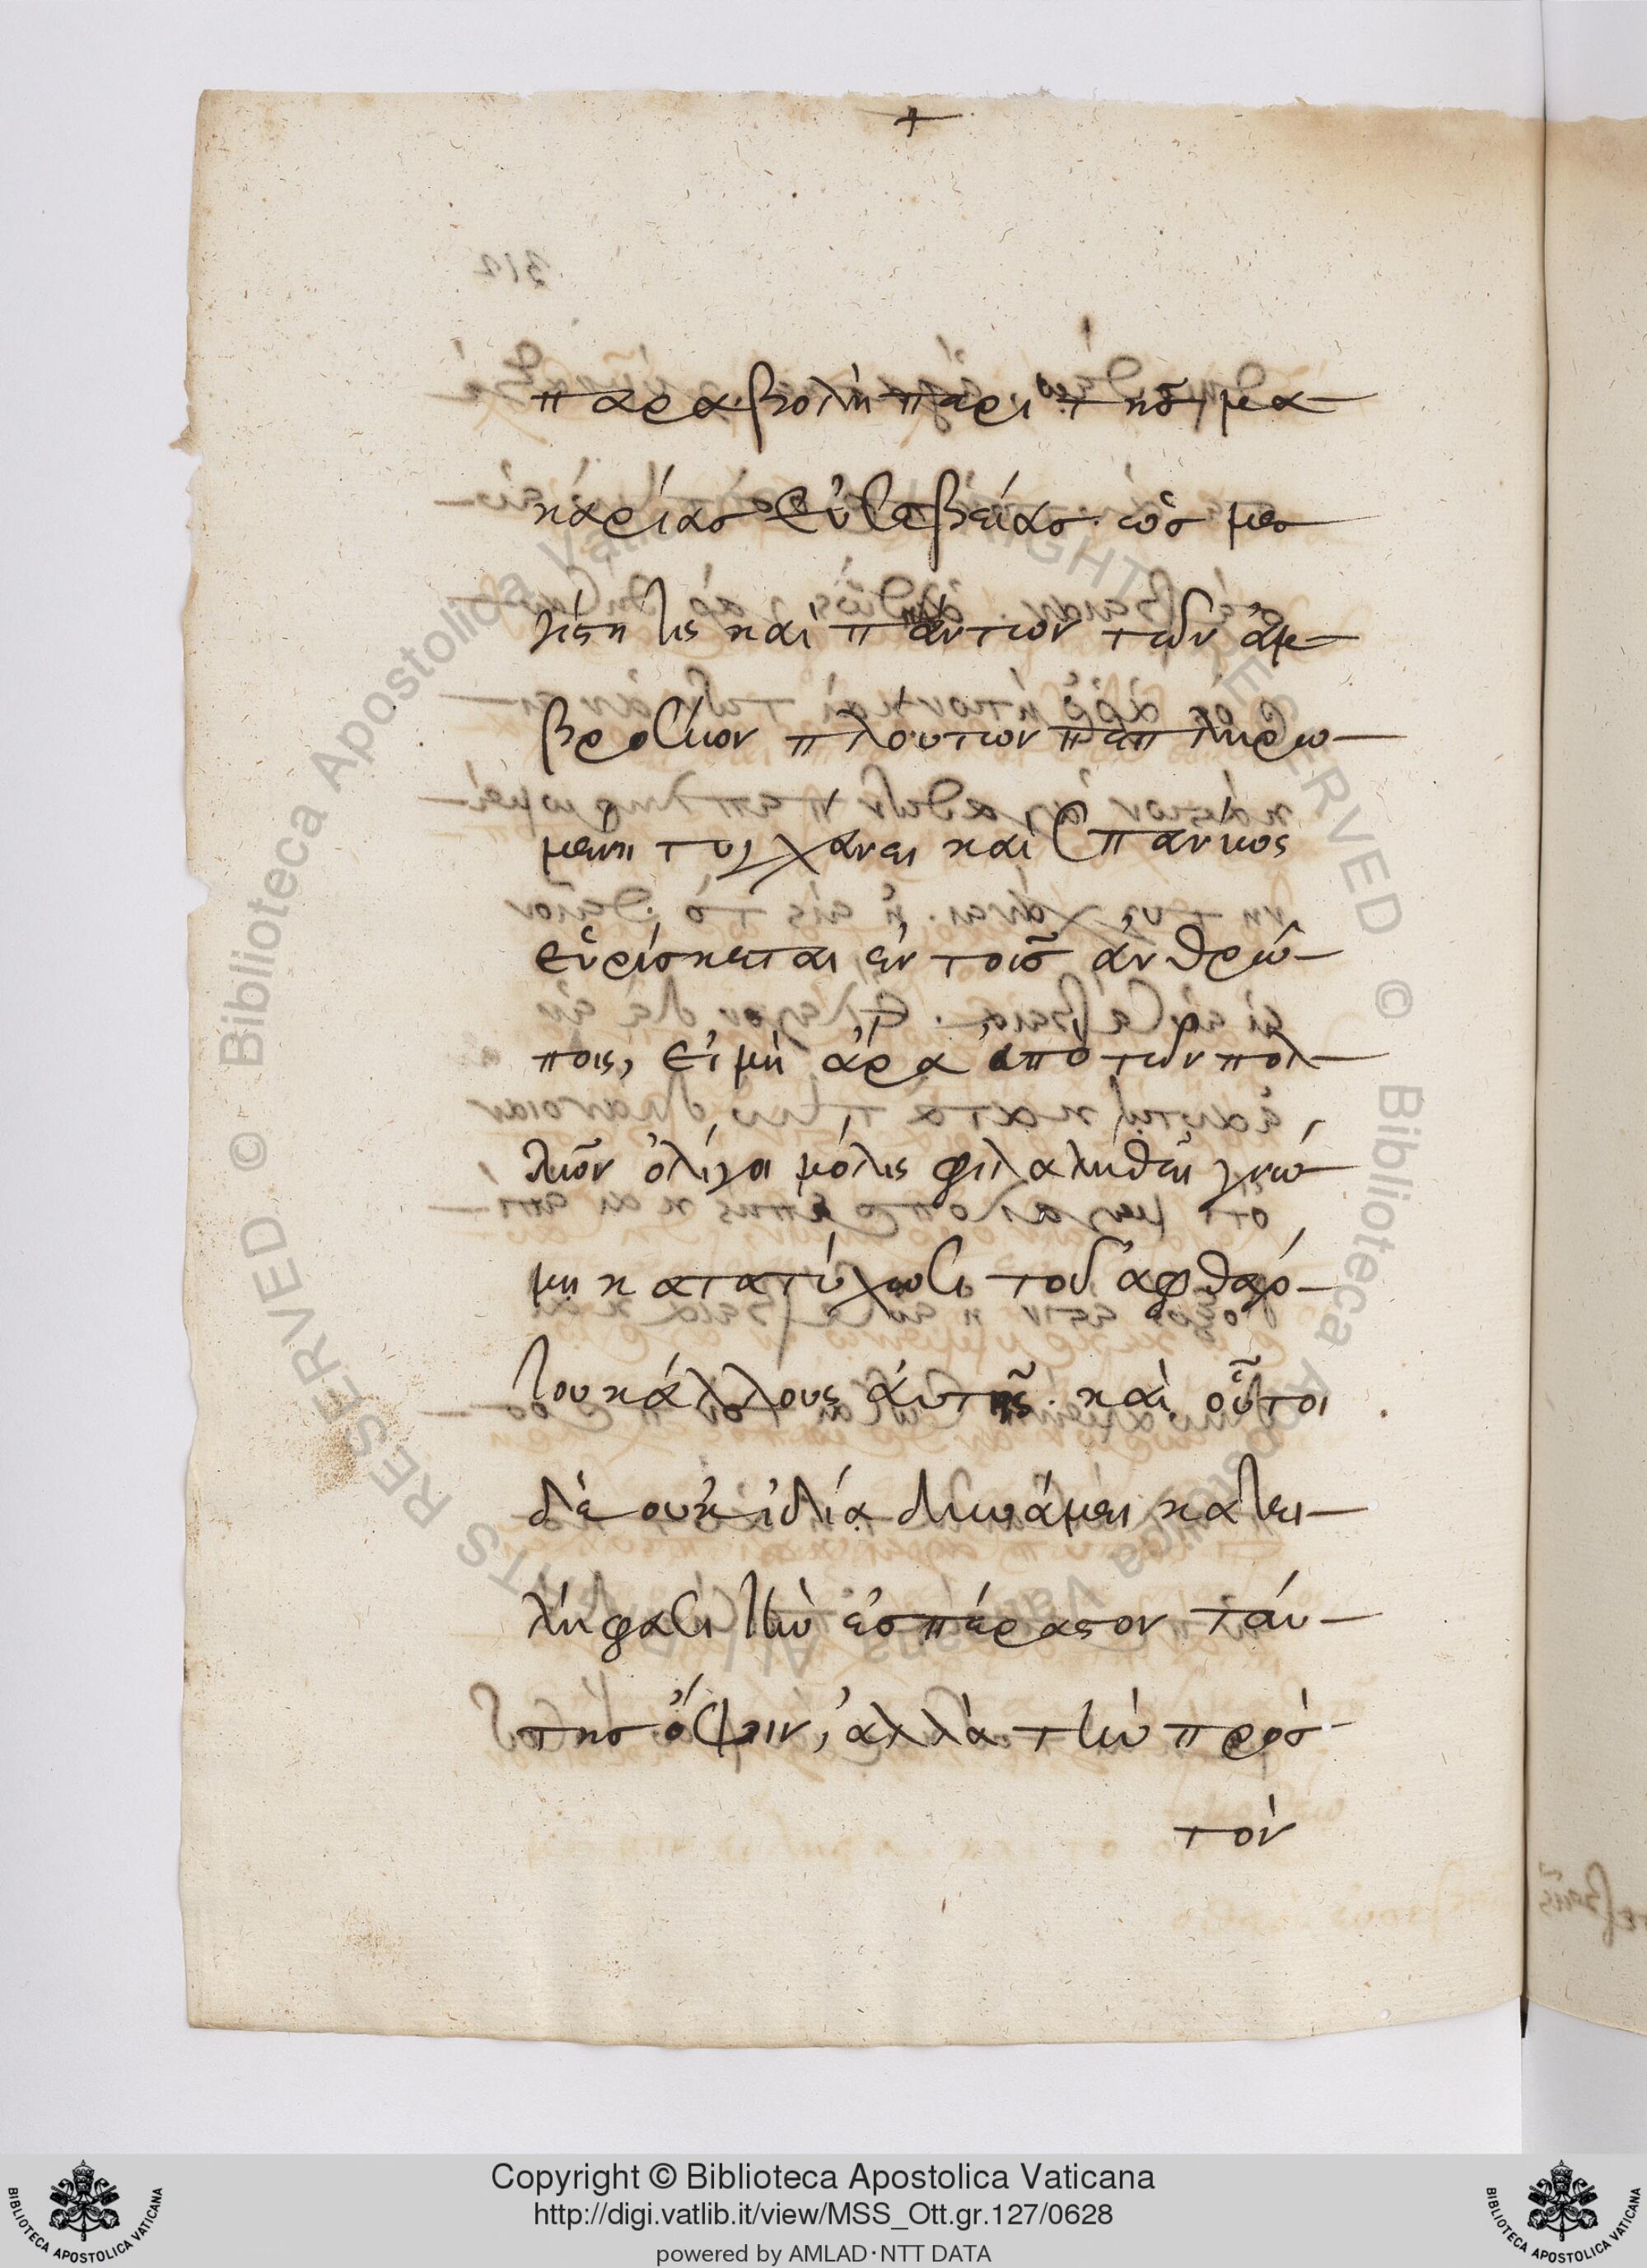 +
παραβολὴ περὶ τῆς μα-
καρίας εὐσεβείας. ὡς με
γίστη τις καὶ πάντων τῶν ἀμ-
βροσίων πλούτων πεπληρω-
μενη τυγχάνει καὶ σπανίως
εὑρίσκεται ἐν τοῖς ἀνθρώ-
ποις, εἰ μὴ ἄρα ἀπὸ τῶν πολ-
λῶν ὀλίγοι μόλις φιλαλήθει γνώ-
μῃ κατατύχωσι τοῦ ἀφθάρ-
του κάλλους ἀυτῆς. καὶ οὗτοι
δὲ ουκ ἰδία δυνάμει κατει-
λήφασι τὴν ἐσπέραστον ταύ-
της ὄψιν, ἀλλὰ τὴν πρὸς
τὸν
Copyright © Biblioteca Apostolica Vaticana
http://digi.vatlib.it/view/MSS_Ott.gr.127/0628
powered by AMLAD·NTT DATA
BIBLIOTECA APOSTOLICA VATICANA
BIBLIOTECA APOSTOLICA VATICANA